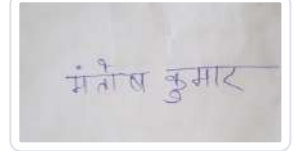 मंतोष कुमार